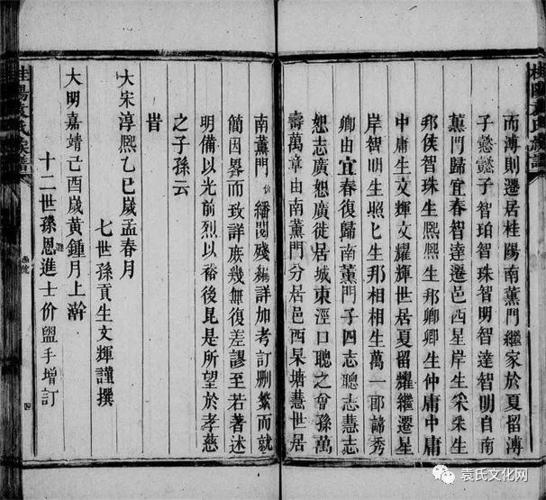 而溥則遷居桂陽南薰門繼家於夏留溥
子懿懿子智珀智珠智明智達智明自南
薰門歸宜春智達遷邑西星岸生采采生
邦侯智珠生熙熙生邦卿卿生仲庸中庸
中庸生文輝文耀輝世居夏留耀繼遷星
岸智明生照照生邦相相生萬一郎諦秀
卿由宜春復歸南薰門子四志聰志慧志
恕志廣恕廣徙居城東涇口聰之會孫萬
壽萬章由南薰門分居邑西杲塘慧世居
南薰門 繙閱殘編詳加考訂刪繁而就
簡因畧而致詳庶幾無復差謬至若著述
明備以光前烈以裕後昆是所望於孝慈
之子孫云
昔
大宋淳熙乙巳歲孟春月
七世孫貢生文輝謹撰
大明嘉靖己酉歲黃鍾月上澣
十二世孫恩進士价盥手增訂
桂陽袁氏族譜
袁氏文化网